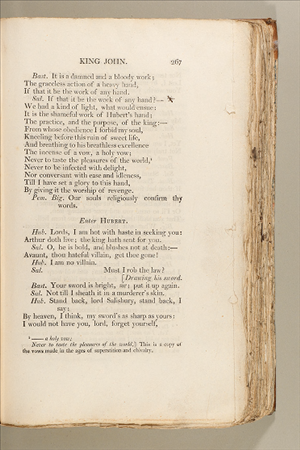 KING JOHN. 267
Bast. It is a damned and a bloody work;
The graceless action of a heavy hand,
If that it be the work of any hand.
Sal. If that it be the work of any hand?—
We had a kind of light, what would ensue:
It is the shameful work of Hubert's hand;
The practice, and the purpose, of the king:—
From whose obedience I forbid my soul,
Kneeling before this ruin of sweet life,
And breathing to his breathless excellence
The incense of a vow, a holy vow;
Never to taste the pleasures of the world,*
Never to be infected with delight,
Nor conversant with ease and idleness,
Till I have set a glory to this hand,
By giving it the worship of revenge.
Pem. Big. Our souls religiously confirm thy
words.
Enter HUBERT.
Hub. Lords, I am hot with haste in seeking you:
Arthur doth live; the king hath sent for you.
Sal. O, he is bold, and blushes not at death:—
Avaunt, thou hateful villain, get thee gone!
Hub. I am no villain.
Sal. Must I rob the law?
[Drawing his sword.
Bast. Your sword is bright, sir; put it up again.
Sal. Not till I sheath it in a murderer's skin.
Hub. Stand back, lord Salisbury, stand back, I
say;
By heaven, I think, my sword's as sharp as yours:
I would not have you, lord, forget yourself,
* —— a holy vow;
Never to taste the pleasures of the world,] This is a copy of
the vows made in the ages of superstition and chivalry.